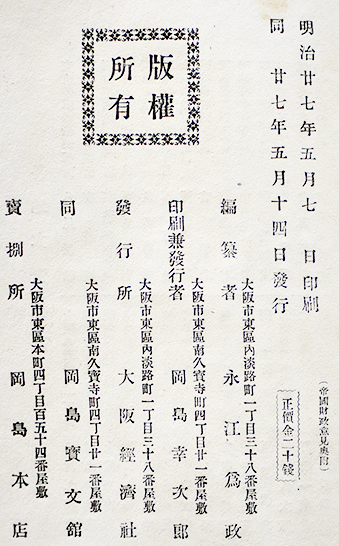 明治廿七年五月七　日印刷
同　廿七年五月十四日發行
(帝國財政意見奧附)
正價金二十錢
版權
所有
編纂者　大阪市東區內淡路町一丁目三十八番屋敷　永江爲政
印刷兼發行者　大阪市東區南久寶寺町四丁目廿一番屋敷　岡島幸次郎
發行所　大阪市東區內淡路町一丁目三十八番屋敷　大阪經濟社
同　大阪市東區南久寶寺町四丁目廿一番屋敷　岡島寶文館
賣捌所　大阪市東區本町四丁目百五十四番屋敷　岡島本店